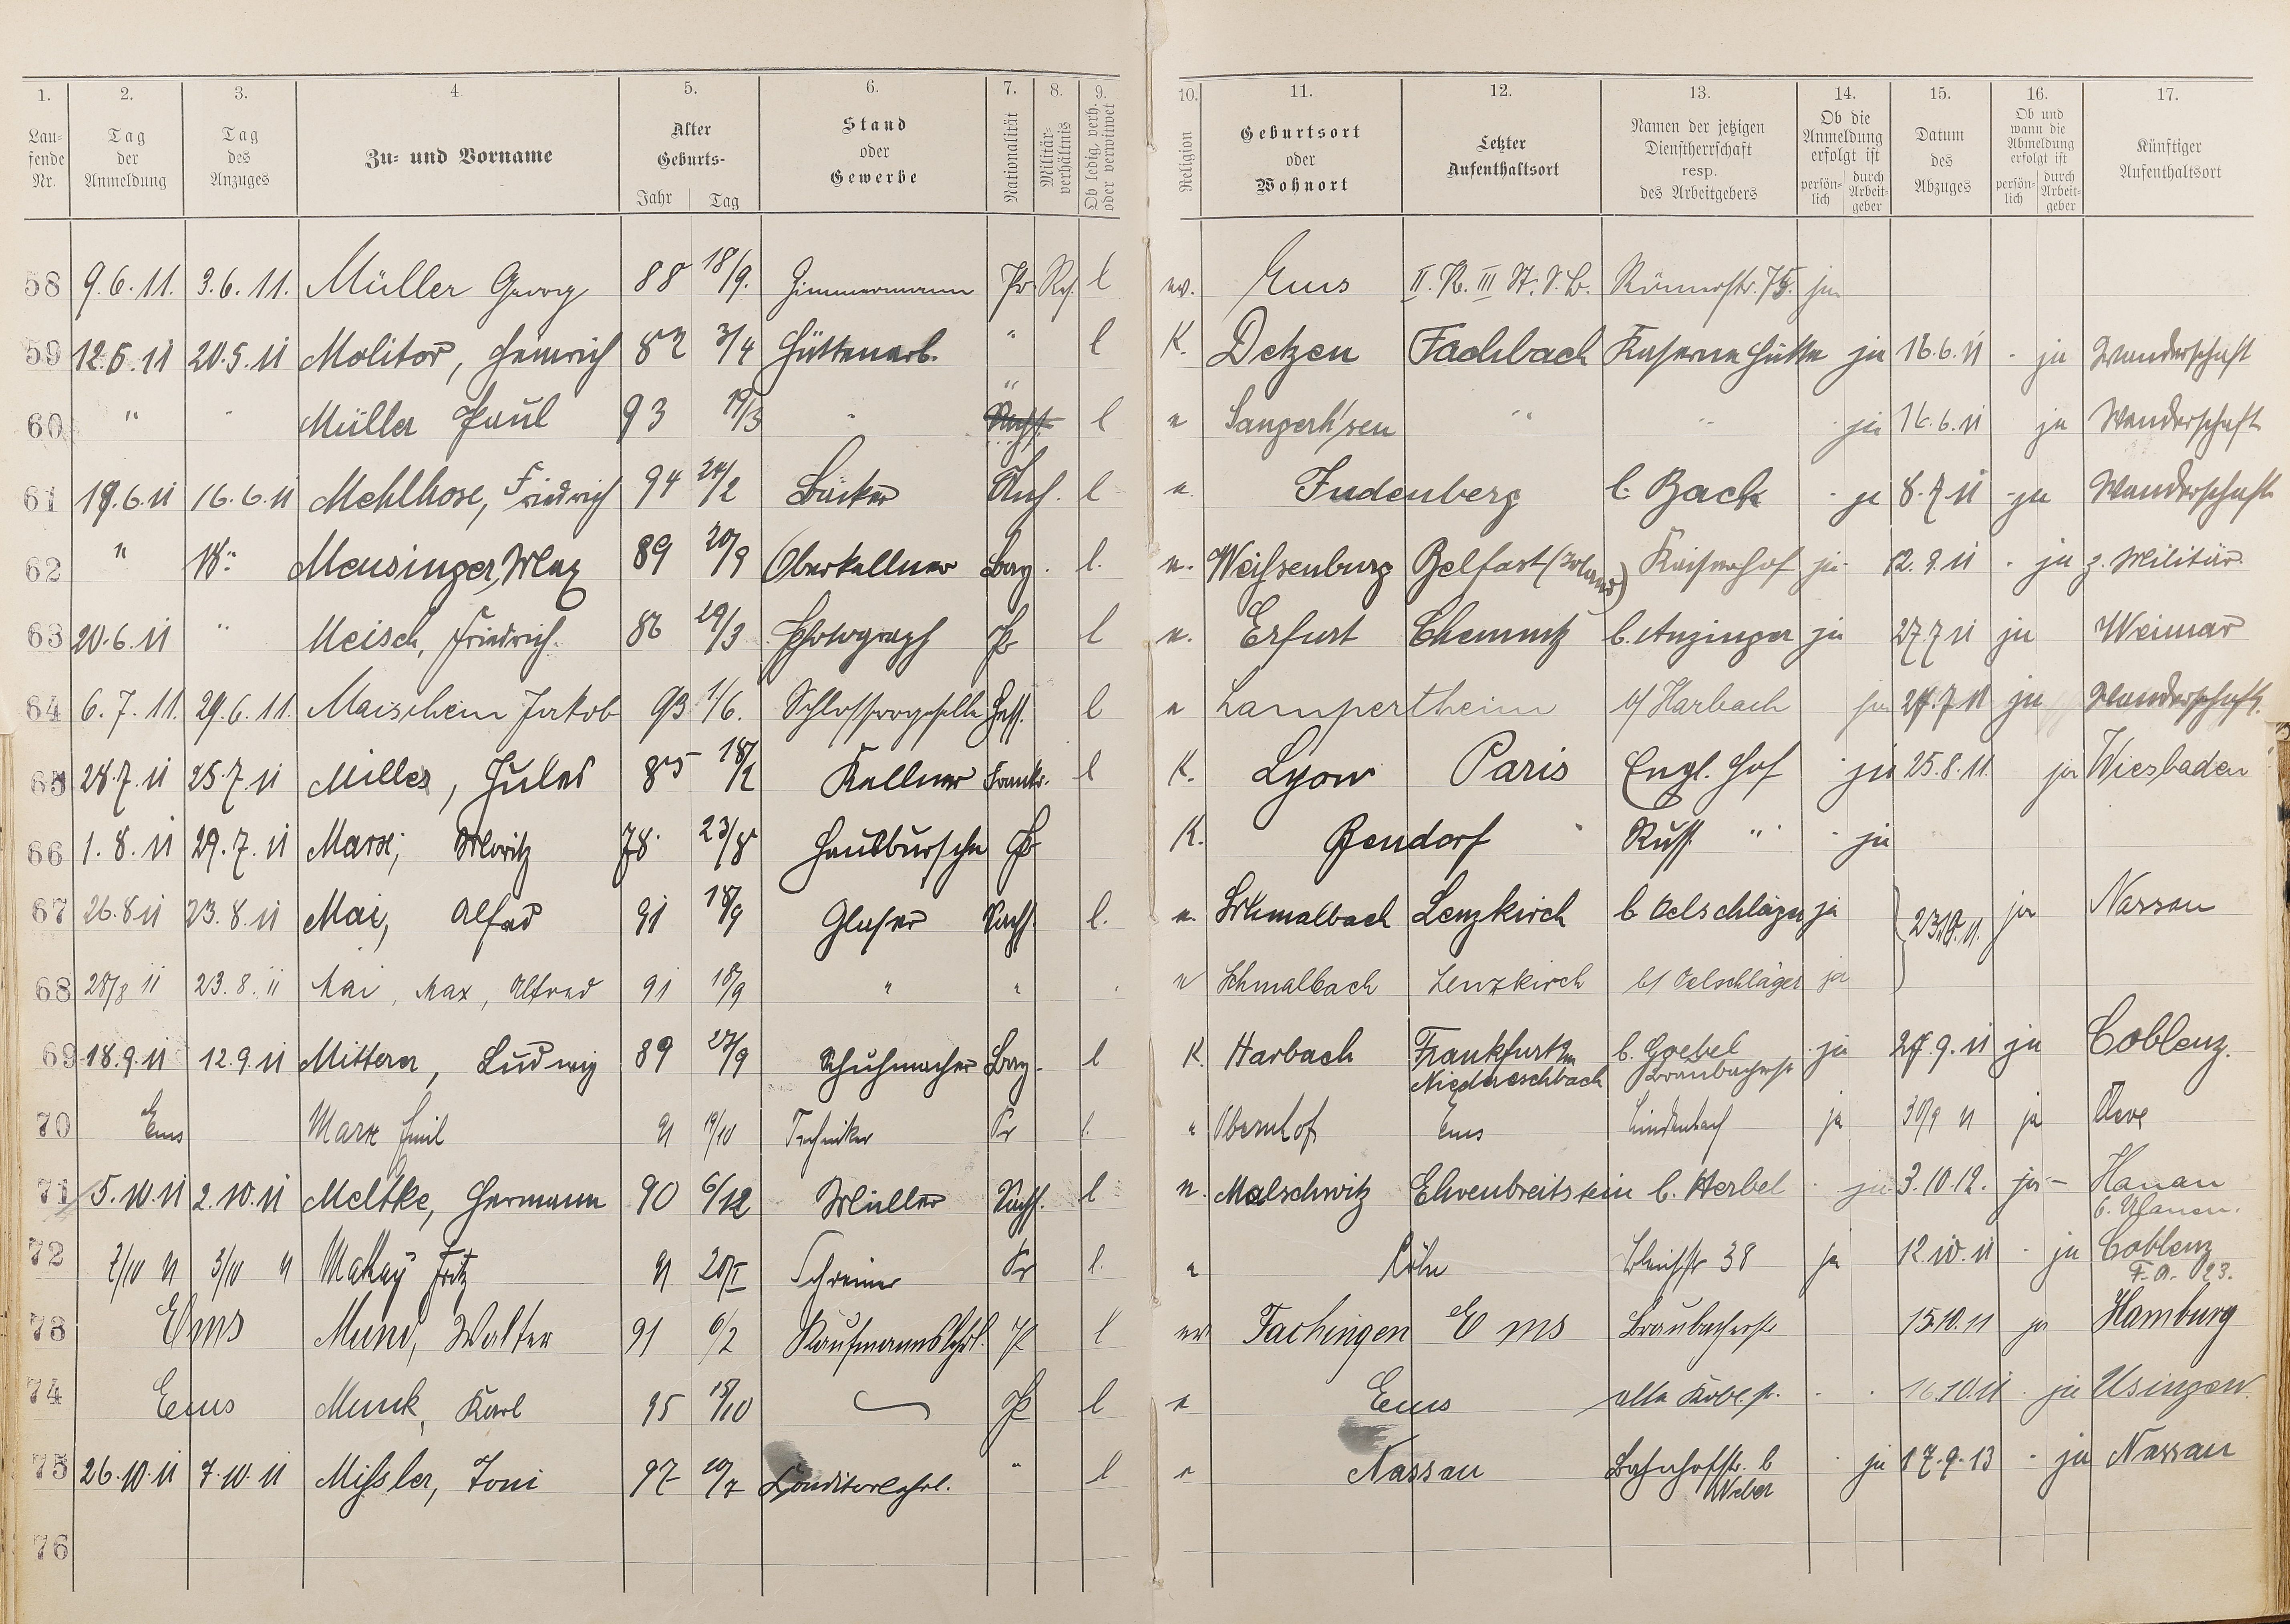 1. 2. 3. 4. 5. 6. 7. 8. 9. 10. 11. 12. 13. 14. 15. 16. 17.
Lau-fende Nr. Tag der Anmeldung Tag des Anzuges Zu- und Vorname Alter Geburts- Jahr Tag Stand oder Gewerbe Nationalität Militär-verhältnis Ob ledig, verh. oder verwitwet Religion Geburtsort oder Wohnort Letzter Aufenthaltsort Namen der jetzigen Dienstherrschaft resp. des Arbeitgebers Ob die Anmeldung erfolgt ist persön-lich durch Arbeit-geber Datum des Abzuges Ob und wann die Abmeldung erfolgt ist persön-lich durch Arbeit-geber Künftiger Aufenthaltsort
58 9.6.11. 3.6.11. Müller Georg 88 18/9. Zimmermann Pr. Res. l ev. Ems II. R. III St. Römerstr. 75. ja
59 12.6.11 20.5.11 Molitor, Heinrich 82 3/4 Hüttenarb. " l K. Detzen Fachbach Kaserne Hütte ja 16.6.11 - ja Wanderschaft
60 " " Müller Paul 93 19/3 " " l e Sangerh'sen " " ja 16.6.11 ja Wanderschaft
61 19.6.11 16.6.11 Mehlhose, Friedrich 94 24/2 Bäcker Anh. l e. Judenberg b. Bach - ja 8.7.11 - ja Wanderschaft
62 " 18." Mensinger, Max 89 20/9 Oberkellner Bay. l. e. Weißenburg Belfast (Irland) Kaiserhof ja 12.9.11 - ja z. Militär
63 20.6.11 " Meisch, Friedrich 86 29/3 Photograph Pr l e. Erfurt Chemnitz b. Anzinger ja 27.7.11 ja Weimar
64 6.7.11. 29.6.11. Maischein Jakob 93 1/6. Schlossergeselle Hess. l e Lampertheim b/ Harbach ja 27.7.11 ja Wanderschaft.
65 28.7.11 25.7.11 Milles, Jules 85 18/2 Kellner Frankr. l K. Lyon Paris Engl. Hof ja 25.8.11. ja Wiesbaden
66 1.8.11 29.7.11 Marx, Moritz 78. 23/8 Hausbursche Pr K. Bendorf Russ. " - ja
67 26.8.11 23.8.11 Mai, Alfred 91 18/9 Glaser Sachs. l. e. Schmalbach Lenzkirch b. Oelschläger ja ja Nassau
68 28/8 11 23.8.11 Mai, Max, Alfred 91 18/9 " " e Schmalbach Lenzkirch b/ Oelschläger ja
69 18.9.11 12.9.11 Mitterer, Ludwig 89 27/9 Schuhmacher Bay. l K. Harbach Frankfurt a/m Niedereschbach b. Goebel Braubacherstr ja 27.9.11 ja Coblenz.
70 Ems Marx Emil 91 19/10 Techniker Pr l. " Obernhof Ems Lindenbach ja 30/9 11 ja Cleve
71 5.10.11 2.10.11 Meltke, Hermann 90 6/12 Müller Sachs. l e. Malschwitz Ehrenbreitstein b. Herbel ja 3.10.12. ja - Hanau 6. Ulanen.
72 7/10 11 3/10 11 Makay Fritz 91 20/I Schreiner Pr l. e Köln Bleichstr 38 ja 12.10.11 - ja Coblenz F.A. 23.
73 Ems Mund, Walter 91 6/2 Kaufmannslehrl. Pr l ev Fachingen Ems Braubacherstr 15.10.11 ja Hamburg
74 Ems Munk, Karl 95 15/10 Pr l e Ems alte Kobl. str. 16.10.11 ja Usingen
75 26.10.11 7.10.11 Mißler, Toni 97 20/7 Conditorlehrl. " l e Nassau Bahnhofstr. b Weber - ja 17.9.13 - ja Nassau
76